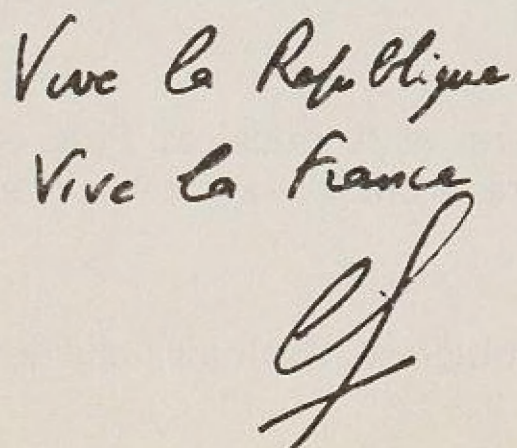 Vive la Republique
Vive la France